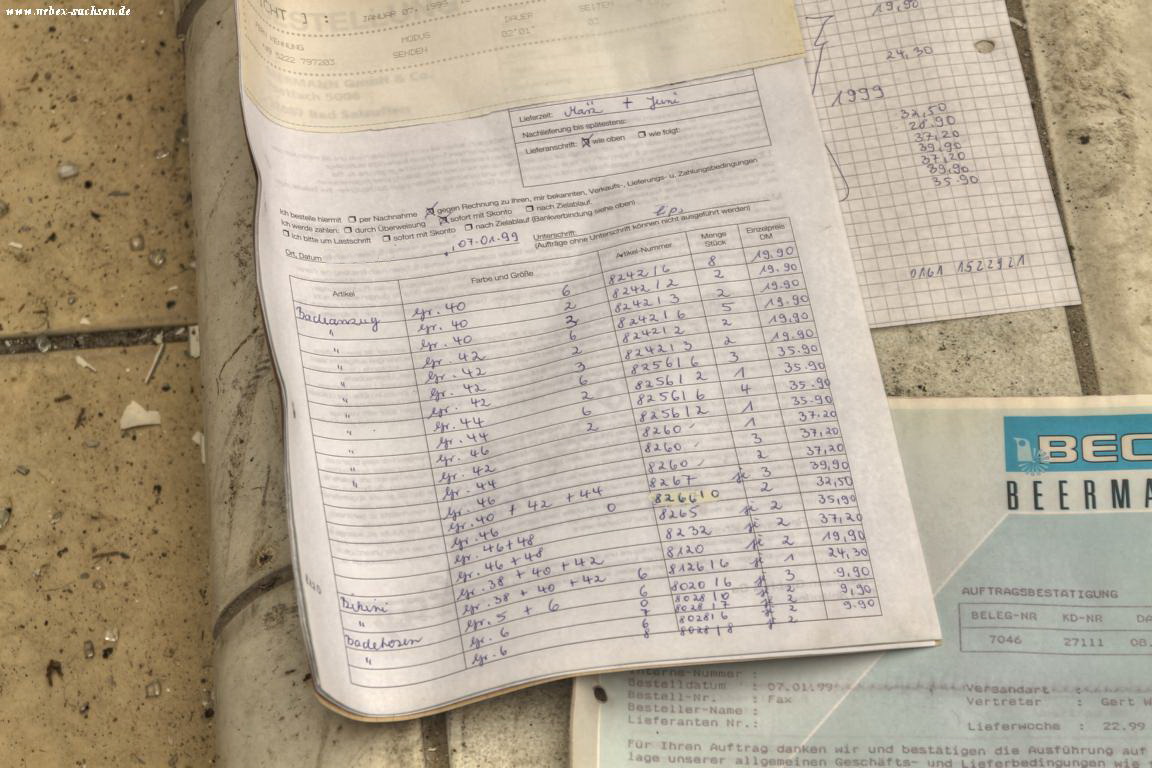 www.urbex-sachsen.de
JANUAR 07, 1999
MODUS
SENDEN
DAUER
02'01"
SEITEN
03
KENNUNG
5222 797203
Lieferzeit: März + Juni
Nachlieferung bis spätestens:
Lieferanschrift: ☒ wie oben ☐ wie folgt:
Ich bestelle hiermit ☐ per Nachnahme ☒ gegen Rechnung zu Ihren, mir bekannten, Verkaufs-, Lieferungs- u. Zahlungsbedingungen
Ich werde zahlen: ☐ durch Überweisung ☒ sofort mit Skonto ☐ nach Zielablauf.
☐ Ich bitte um Lastschrift ☐ sofort mit Skonto ☐ nach Zielablauf (Bankverbindung siehe oben)
Ort, Datum 07-01-99 Unterschrift:
(Aufträge ohne Unterschrift können nicht ausgeführt werden)
Artikel Farbe und Größe Artikel-Nummer Menge Stück Einzelpreis DM
Badeanzug Gr. 40 6 8242/6 8 19.90
" Gr. 40 2 8242/2 2 19.90
" Gr. 40 3 8242/3 2 19.90
" Gr. 42 6 8242/6 5 19.90
" Gr. 42 2 8242/2 2 19,90
" Gr. 42 3 8242/3 2 19.90
" Gr. 44 6 8256/6 3 35.90
Gr. 44 2 8256/2 1 35.90
" Gr. 46 6 8256/6 4 35.90
" Gr. 42 2 8256/2 1 35.90
" Gr. 44 8260 1 37.20
Gr. 46 8260 3 37,20
Gr. 40 + 42 + 44 8260 2 37,20
Gr. 46 8267 je 3 39,90
Gr. 46+48 0 8266/0 2 32,50
Gr. 46 + 48 8265 je 2 35,90
Gr. 38 + 40 + 42 8232 je 2 37,20
Bikini Gr. 38 + 40 + 42 8120 je 2 19,90
" Gr. 5 + 6 6 8126/6 je 1 24,30
Badehosen Gr. 6 6 8020/6 je 3 9,90
" Gr. 6 0 8028/0 je 2 9,90
7 8028/7 je 2 9.90
6 8028/6 je 2
8 8028/8
19,90
24,30
1999
32,50
28.90
37,20
39,90
37,20
39,90
35.90
0161 1522921
BEC
BEERMA
AUFTRAGSBESTÄTIGUNG
BELEG-NR KD-NR DA
7046 27111 08.
Interne-Nummer :
Bestelldatum : 07.01.99
Bestell-Nr. : Fax
Besteller-Name :
Lieferanten Nr.:
Versandart :
Vertreter : Gert W
Lieferwoche : 22.99
Für Ihren Auftrag danken wir und bestätigen die Ausführung auf
lage unserer allgemeinen Geschäfts- und Lieferbedingungen wie